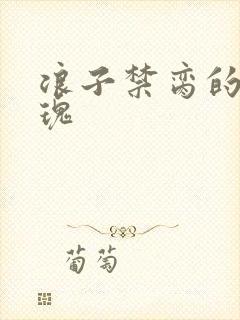 浪子禁脔的
瑰
葡萄